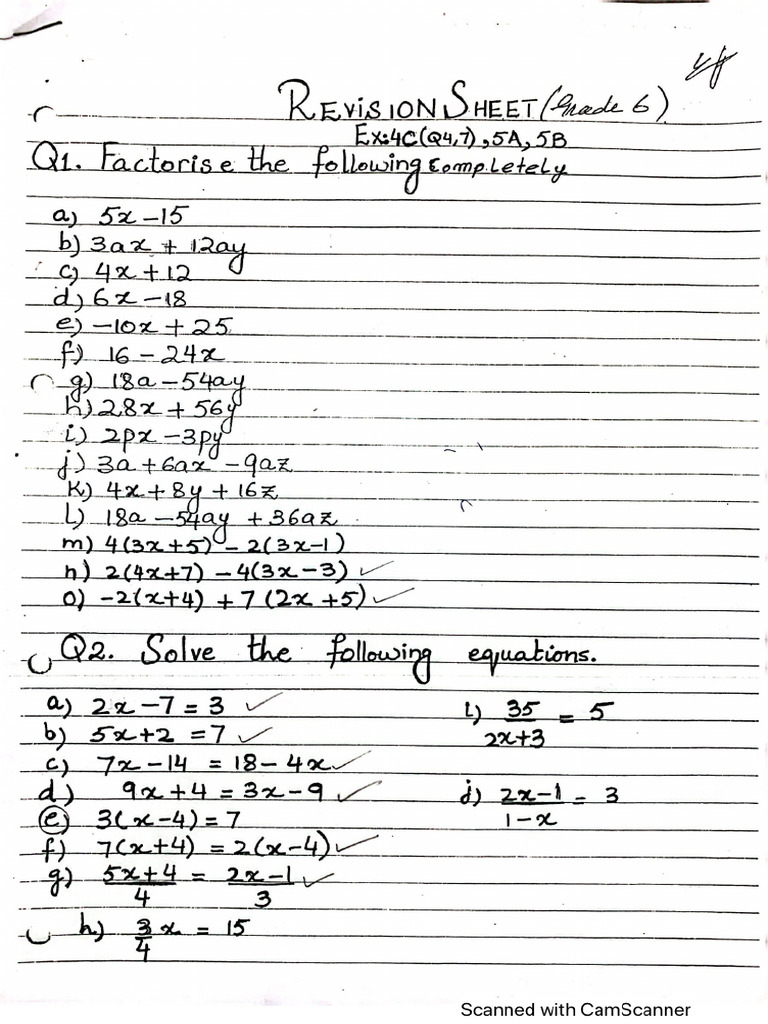 REVISION SHEET (Grade 6)
Ex:4C(Q4,7), 5A, 5B
Q1. Factorise the following completely
a) 5x - 15
b) 3ax + 12ay
c) 4x + 12
d) 6x - 18
e) -10x + 25
f) 16 - 24x
g) 18a - 54ay
h) 28x + 56y
i) 2px - 3py
j) 3a + 6ax - 9az
k) 4x + 8y + 16z
l) 18a - 54ay + 36az
m) 4(3x+5) - 2(3x-1)
n) 2(4x+7) - 4(3x-3) ✓
o) -2(x+4) + 7(2x+5) ✓
Q2. Solve the following equations.
a) 2x - 7 = 3 ✓
b) 5x + 2 = 7 ✓
c) 7x - 14 = 18 - 4x ✓
d) 9x + 4 = 3x - 9 ✓
e) 3(x-4) = 7
f) 7(x+4) = 2(x-4) ✓
g) 5x+4/4 = 2x-1/3 ✓
h) 3/4 x = 15
i) 35/2x+3 = 5
j) 2x-1/1-x = 3
Scanned with CamScanner